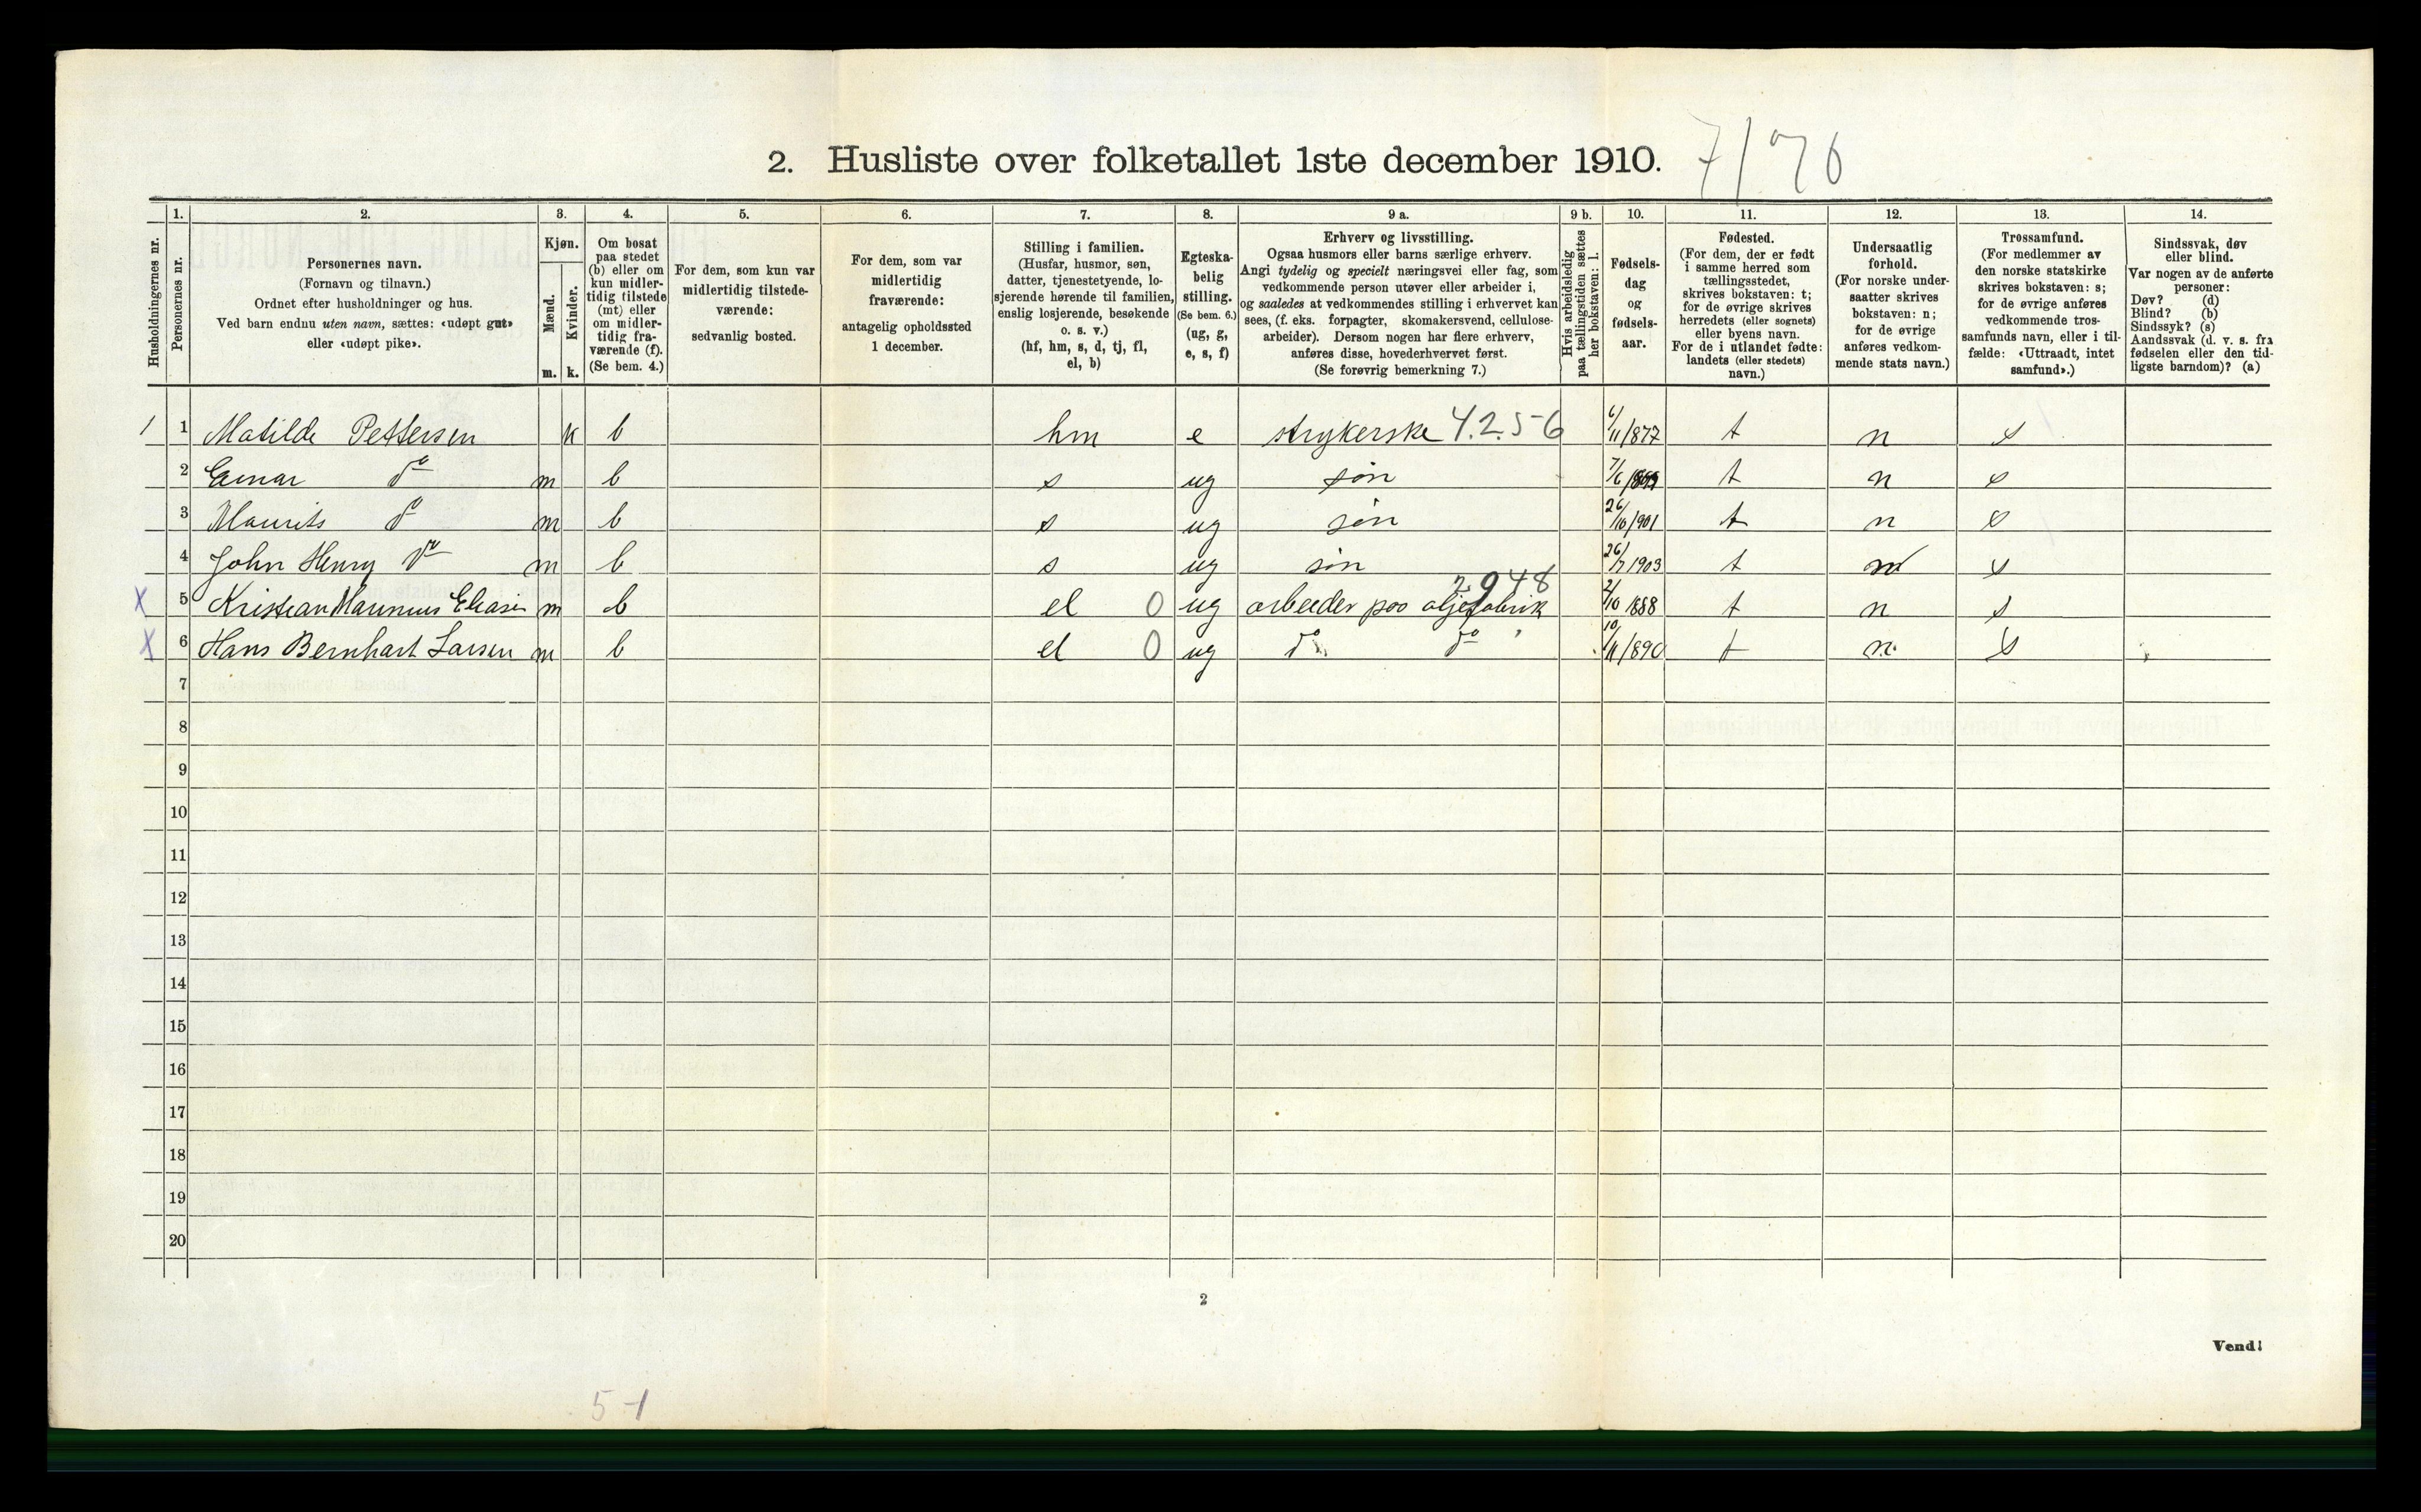 2. Husliste over folketallet 1ste december 1910. 7/76
1. 2. 3. 4. 5. 6. 7. 8. 9 a. 9 b. 10. 11. 12. 13. 14.
Husholdningernes nr.
Personernes nr.
Personernes navn.
(Fornavn og tilnavn.)
Ordnet efter husholdninger og hus.
Ved barn endnu uten navn, sættes: «udøpt gut»
eller «udøpt pike».
Kjøn.
Mænd.
Kvinder.
m. k.
Om bosat
paa stedet
(b) eller om
kun midler-
tidig tilstede
(mt) eller
om midler-
tidig fra-
værende (f).
(Se bem. 4.)
For dem, som kun var
midlertidig tilstede-
værende:
sedvanlig bosted.
For dem, som var
midlertidig
fraværende:
antagelig opholdssted
1 december.
Stilling i familien.
(Husfar, husmor, søn,
datter, tjenestetyende, lo-
sjerende hørende til familien,
enslig losjerende, besøkende
o. s. v.)
(hf, hm, s, d, tj, fl,
el, b)
Egteska-
belig
stilling.
(Se bem. 6.)
(ug, g,
e, s, f)
Erhverv og livsstilling.
Ogsaa husmors eller barns særlige erhverv.
Angi tydelig og specielt næringsvei eller fag, som
vedkommende person utøver eller arbeider i,
og saaledes at vedkommendes stilling i erhvervet kan
sees, (f. eks. forpagter, skomakersvend, cellulose-
arbeider). Dersom nogen har flere erhverv,
anføres disse, hovederhvervet først.
(Se forøvrig bemerkning 7.)
Hvis arbeidsledig
paa tællingstiden sættes
her bokstaven: l.
Fødsels-
dag
og
fødsels-
aar.
Fødested.
(For dem, der er født
i samme herred som
tællingsstedet,
skrives bokstaven: t;
for de øvrige skrives
herredets (eller sognets)
eller byens navn.
For de i utlandet fødte:
landets (eller stedets)
navn.)
Undersaatlig
forhold.
(For norske under-
saatter skrives
bokstaven: n;
for de øvrige
anføres vedkom-
mende stats navn.)
Trossamfund.
(For medlemmer av
den norske statskirke
skrives bokstaven: s;
for de øvrige anføres
vedkommende tros-
samfunds navn, eller i til-
fælde: «Uttraadt, intet
samfund».)
Sindssvak, døv
eller blind.
Var nogen av de anførte
personer:
Døv? (d)
Blind? (b)
Sindssyk? (s)
Aandssvak (d. v. s. fra
fødselen eller den tid-
ligste barndom)? (a)
1 1 Matilde Pettersen k b hm e strykerske 4.2.56 6/11/877 t n s
2 Einar do m b s ug søn 7/6/899 t n s
3 Maurits do m b s ug søn 26/10/901 t n s
4 John Henry do m b s ug søn 26/7 1903 t n s
X 5 Kristian Marinius Eliasen m b el 0 ug arbeider paa oljefabrik 2.948 2/10 1888 t n s
X 6 Hans Bernhart Larsen m b el 0 ug do do 10/11/890 t n s
7
8
9
10
11
12
13
14
15
16
17
18
19
20
2
Vend!
5-1